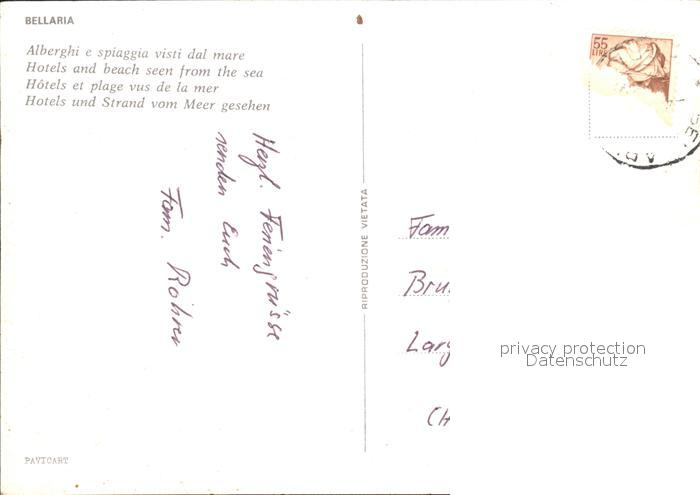 BELLARIA
Alberghi e spiaggia visti dal mare
Hotels and beach seen from the sea
Hôtels et plage vus de la mer
Hotels und Strand vom Meer gesehen
Herzl. Feriengrüsse
senden Euch
Fam. Rohrer
PAVICART
RIPRODUZIONE VIETATA
55
LIRE
Fam
Bru
Larg
CH
privacy protection
Datenschutz